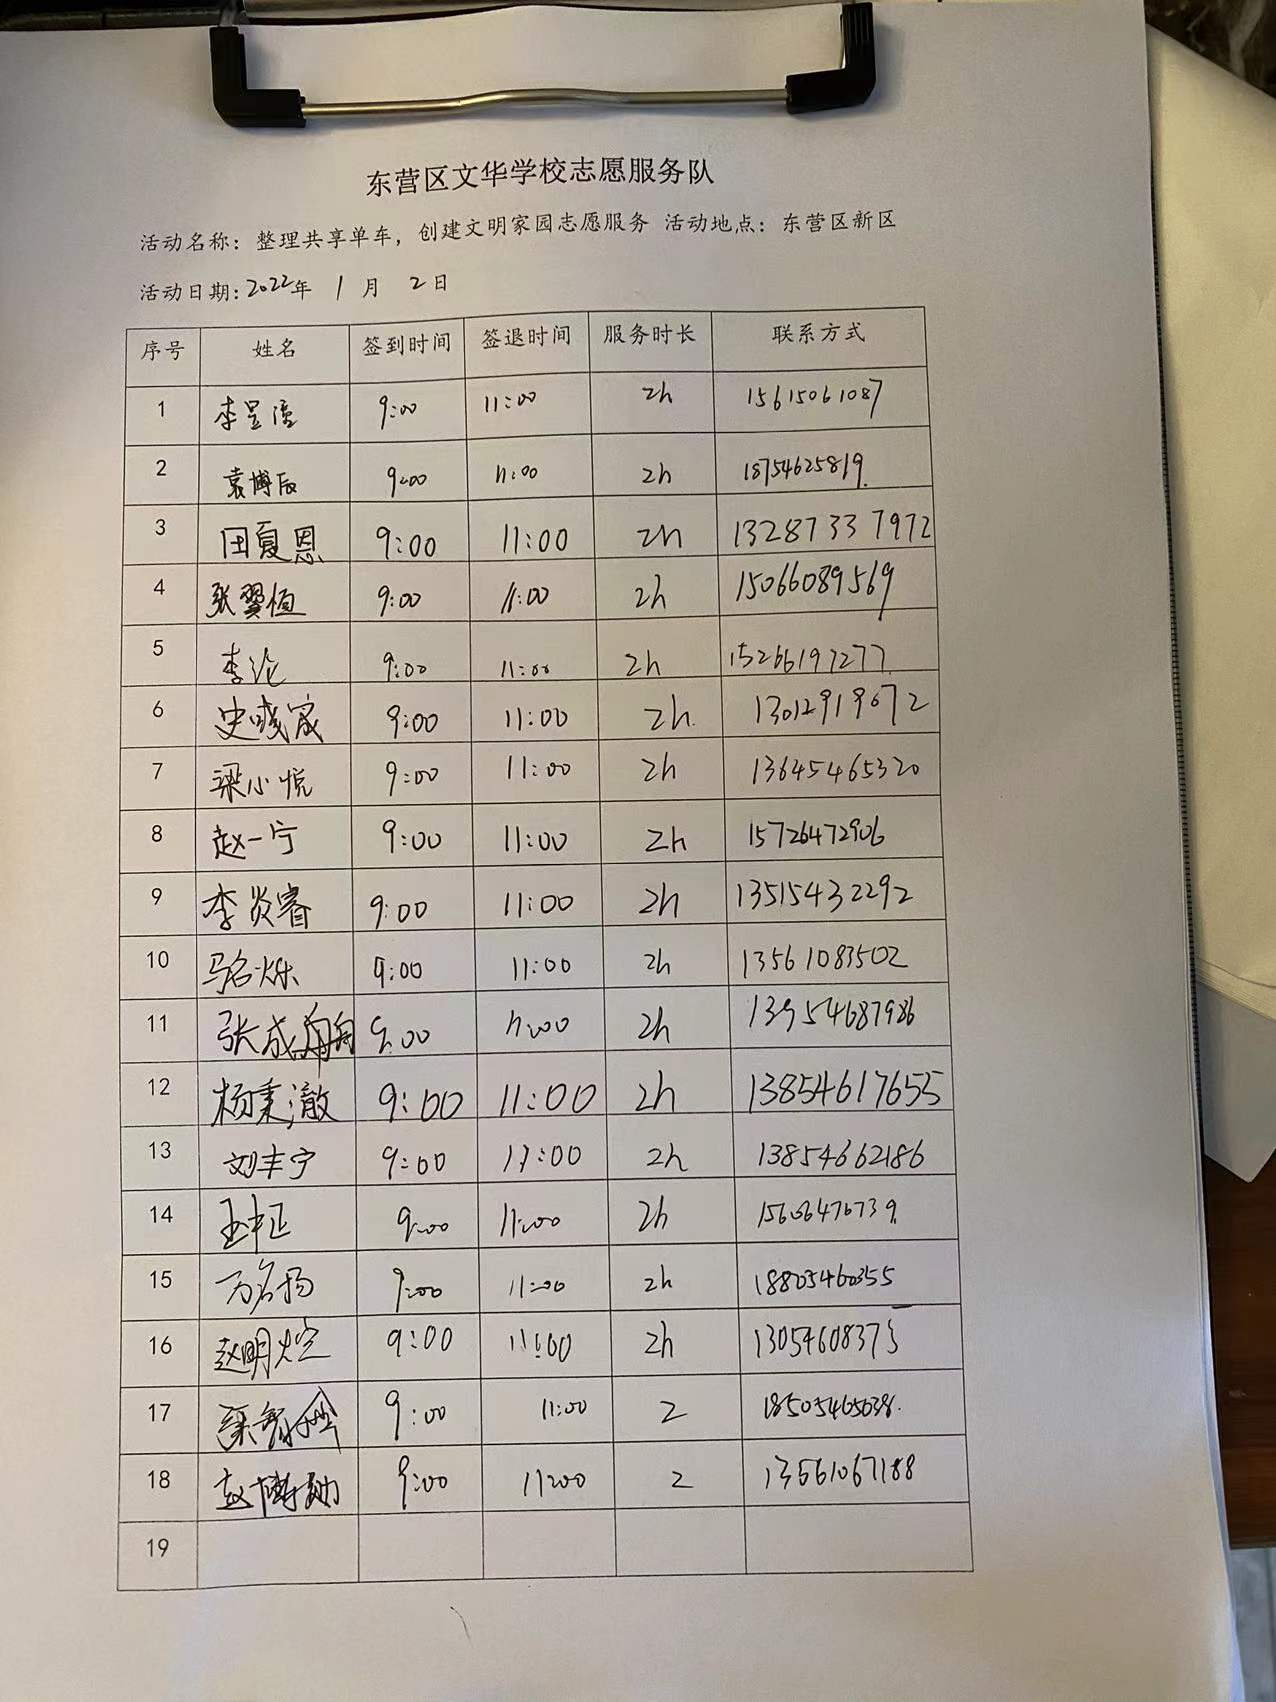 东营区文华学校志愿服务队
活动名称：整理共享单车，创建文明家园志愿服务 活动地点：东营区新区
活动日期：2022年 1 月 2 日
序号 姓名 签到时间 签退时间 服务时长 联系方式
1 李昱滢 9:00 11:00 2h 15615061087
2 袁博辰 9:00 11:00 2h 18754625819
3 田夏恩 9:00 11:00 2h 13287337972
4 张翼恒 9:00 11:00 2h 15066089569
5 李论 9:00 11:00 2h 15266197277
6 史晓宬 9:00 11:00 2h 13012919672
7 梁小悦 9:00 11:00 2h 13645465320
8 赵一宁 9:00 11:00 2h 15726472906
9 李炎睿 9:00 11:00 2h 13515432292
10 马名烁 9:00 11:00 2h 13561083502
11 张成 9:00 11:00 2h 13954687986
12 杨秉澈 9:00 11:00 2h 13854617655
13 刘丰宁 9:00 11:00 2h 13854662186
14 王中正 9:00 11:00 2h 15606476739
15 万名扬 9:00 11:00 2h 18805460355
16 赵明煊 9:00 11:00 2h 13054608375
17 9:00 11:00 2 18505465038
18 赵博勋 9:00 11:00 2 13561067188
19